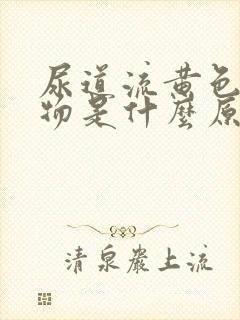 尿道流黄色
物是什麼原
清泉巖上流